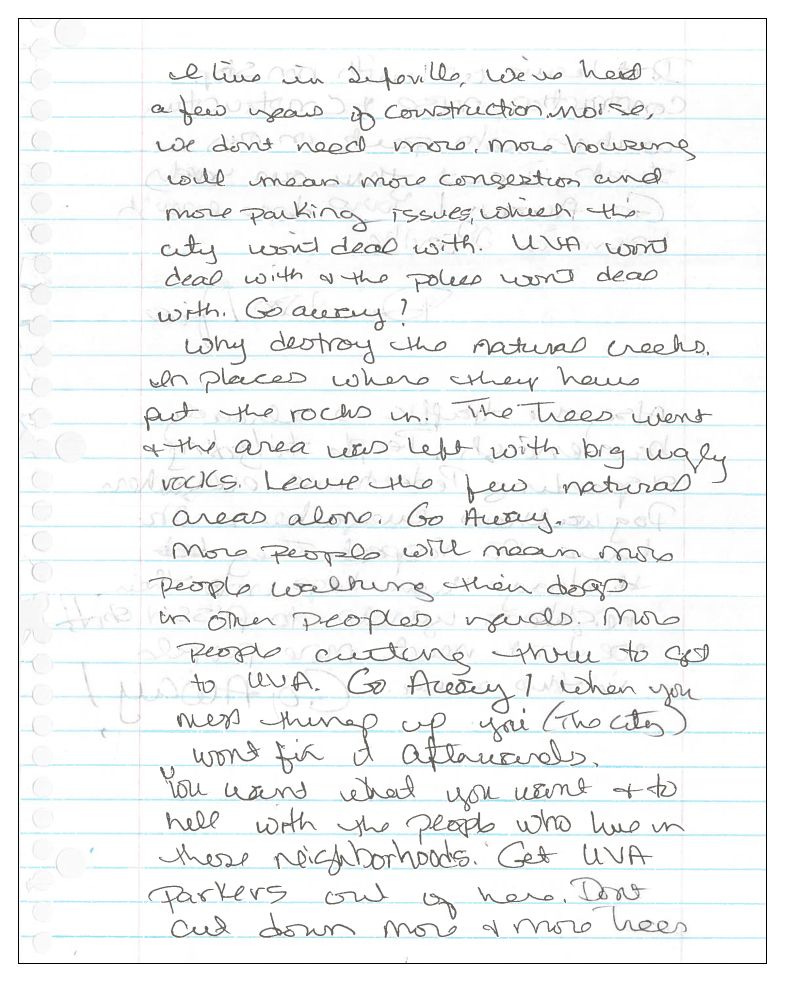 I live in Fifeville, we've had
a few years of construction noise,
we dont need more. more housing
will mean more congestion and
more parking issues, which the
city won't deal with. UVA wont
deal with & the police won't deal
with. Go away?
Why destroy the natural creeks.
In places where they have
put the rocks in. The Trees went
& the area was left with big ugly
rocks. Leave the few natural
areas alone. Go Away.
More people will mean more
people walking their dogs
in other peoples yards. More
people cutting thru to get
to UVA. Go Away! When you
mess things up you (The city)
wont fix it afterwards.
You want what you want & to
hell with the people who live in
these neighborhoods. Get UVA
parkers out of here. Dont
cut down more & more Trees